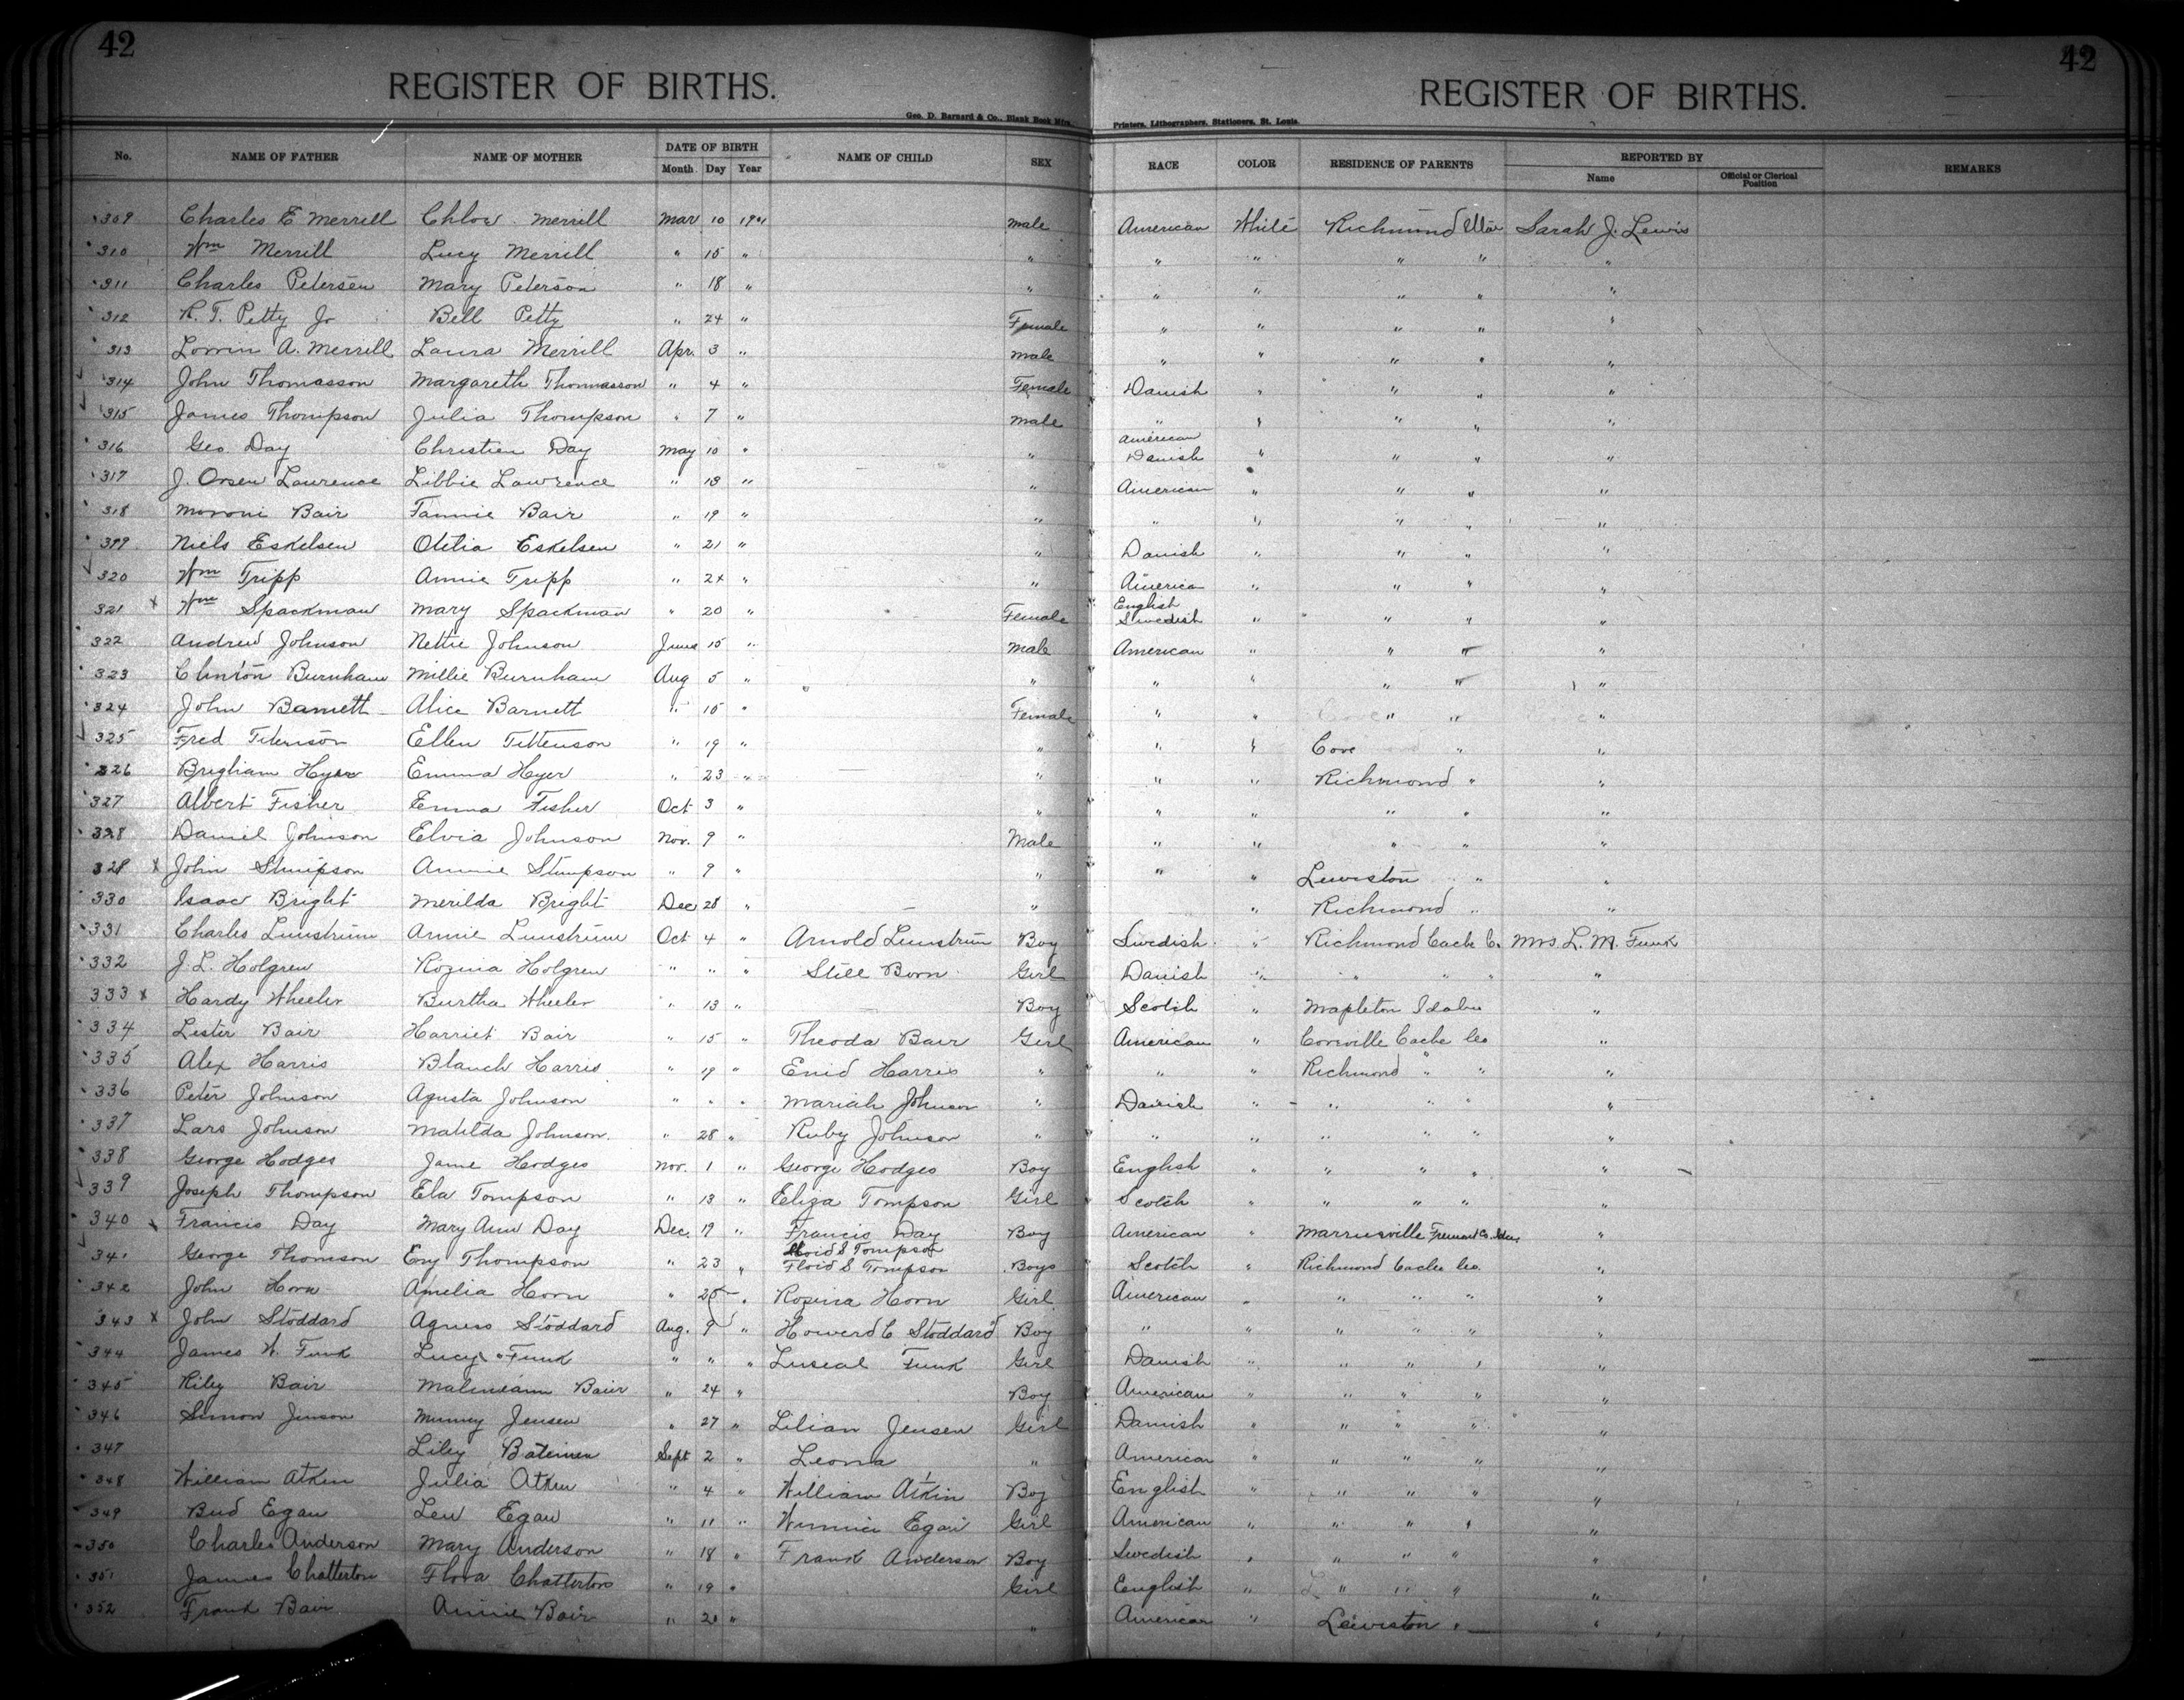 42 42
REGISTER OF BIRTHS. REGISTER OF BIRTHS.
Geo. D. Barnard & Co., Blank Book Mfrs. Printers, Lithographers, Stationers, St. Louis.
No. NAME OF FATHER NAME OF MOTHER DATE OF BIRTH NAME OF CHILD SEX RACE COLOR RESIDENCE OF PARENTS REPORTED BY REMARKS
Month Day Year Name Official or Clerical Position
309 Charles E Merrill Chloe Merrill Mar 10 1901 male American White Richmond Utah Sarah J. Lewis
310 Wm Merrill Lucy Merrill " 15 " " " " " " "
311 Charles Petersen Mary Peterson " 18 " " " " " " "
312 R. T. Petty Jr Bell Petty " 24 " Female " " " " "
313 Lorrin A. Merrill Laura Merrill Apr. 3 " male " " " " "
314 John Thomasson Margareth Thommasson " 4 " Female Danish " " " "
315 James Thompson Julia Thompson " 7 " male " " " " "
316 Geo Day Christien Day May 10 " " American Danish " " " "
317 J. Orsen Lawrence Libbie Lawrence " 13 " " American " " " "
318 Moroni Bair Fannie Bair " 19 " " " " " " "
319 Niels Eskelsen Otilia Eskelsen " 21 " " Danish " " " "
320 Wm Tripp Annie Tripp " 24 " " America " " " "
321 x Wm Spackman Mary Spackman " 20 " Female English Swedish " " " "
322 Andrew Johnson Nettie Johnson June 15 " male American " " " "
323 Clinton Burnham Millie Burnham Aug 5 " " " " " " "
324 John Barnett Alice Barnett " 15 " Female " " " " "
325 Fred Titenson Ellen Tittenson " 19 " " " " Cove " "
326 Brigham Hyer Emma Hyer " 23 " " " " Richmond " "
327 Albert Fisher Emma Fisher Oct 3 " " " " " " "
328 Daniel Johnson Elvia Johnson Nov. 9 " Male " " " " "
328 x John Stimpson Annie Stimpson " 9 " " " " Lewiston " "
330 Isaac Bright Merilda Bright Dec 28 " " " Richmond " "
331 Charles Lunstrum Annie Lunstrum Oct 4 " Arnold Lunstrum Boy Swedish " Richmond Cache Co. Mrs. L. M. Funk
332 J. L. Holgren Rozina Holgren " " " Still Born Girl Danish " " " " "
333 x Hardy Wheeler Burtha Wheeler " 13 " Boy Scotch " Mapleton Idaho "
334 Lester Bair Harriet Bair " 15 " Theoda Bair Girl American " Coveville Cache Co "
335 Alex Harris Blanch Harris " 19 " Enid Harris " " " Richmond " " "
336 Peter Johnson Agusta Johnson " " " Mariah Johnson " Danish " " " " "
337 Lars Johnson Matilda Johnson. " 28 " Ruby Johnson " " " " " " "
338 George Hodges Jane Hodges Nov. 1 " George Hodges Boy English " " " " "
339 Joseph Thompson Ela Tompson " 13 " Eliza Tompson Girl Scotch " " " " "
340 Francis Day Mary Ann Day Dec. 19 " Francis Day Boy American " Fremont Co. "
341 George Thomson Thompson " 23 " Floid S Tompson Boys Scotch " Richmond Cache Co. "
342 John Horn Amelia Horn " 25 " Rozina Horn Girl American " " " " "
343 x John Stoddard Agness Stoddard Aug. 9 " Howerd C Stoddard Boy " " " " " "
344 James W. Funk Lucy " Funk " " " Luseal Funk Girl Danish " " " " "
345 Riley Bair Bair " 24 " Boy American " " " " "
346 Simon Jenson Jensen " 27 " Lilian Jensen Girl Danish " " " " "
347 Lily Sept 2 " Leona " American " " " " "
348 William Atkin Julia Atkin " 4 " William Atkin Boy English " " " " "
349 Bud Egan Egan " 11 " Egan Girl American " " " " "
350 Charles Anderson Mary Anderson " 18 " Frank Anderson Boy Swedish " " " " "
351 James Chatterton Flora Chatterton " 19 " Girl English " " " " "
352 Frank Bair Annie Bair " 20 " " American " Lewiston " "